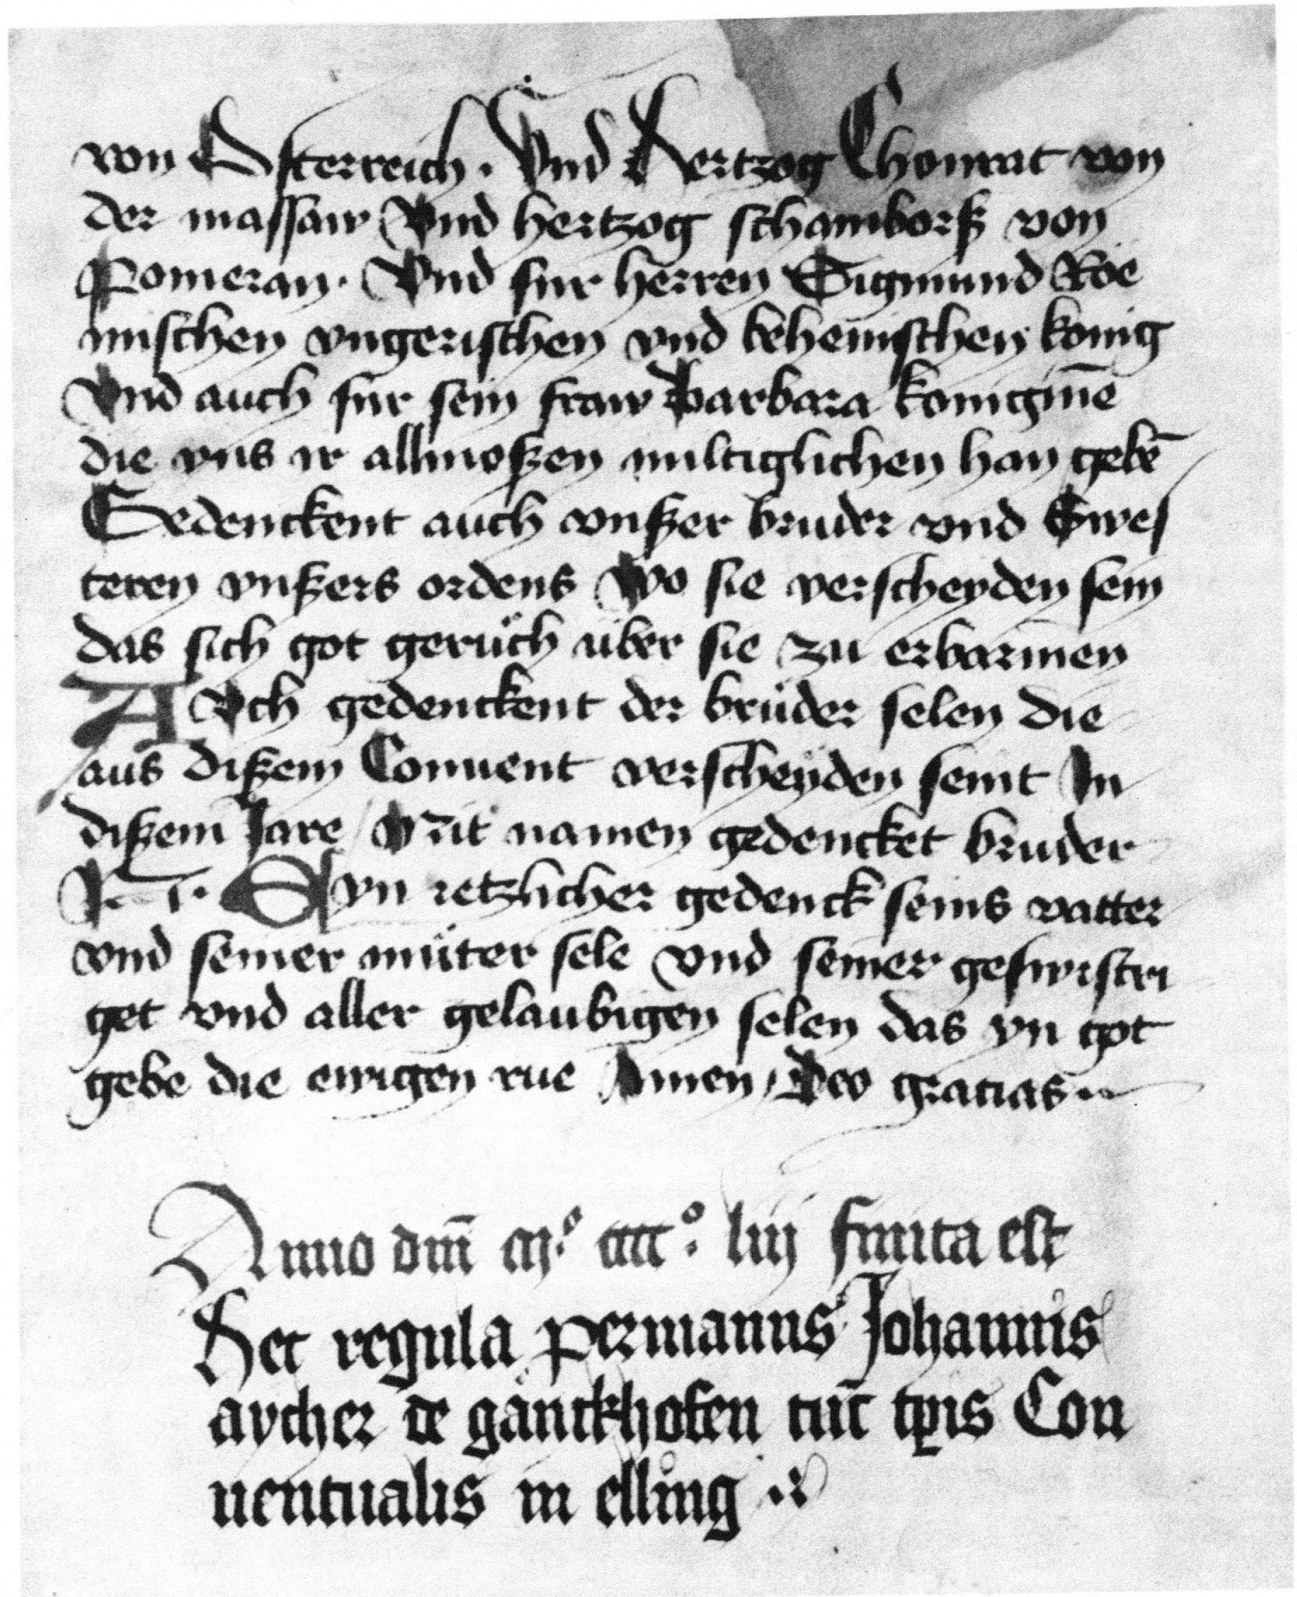 von Osterreich · Vnd Hertzog Chonrat von
der massaw Vnd hertzog schamborß von
Pomeran · Vnd fur herren Sigmund Roe
mischen vngerischen vnd behemischen konig
Vnd auch fur sein fraw Barbara konigiñe
die vns ir allmoßen miltiglichen han gebē
Gedenckent auch vnßer bruder vnd Swes
teren vnßers ordens Wo sie verscheyden sein
das sich got geruͦch uber sie zu erbarmen
AVch gedenckent der bruͤder selen die
aus dißem Conuent verscheyden seint In
dißem Jare / Mit namen gedencket bruder
Eyn ietzlicher gedenck seins vatter
vnd seiner muͦter sele vnd seiner geswistri
get vnd aller gelaubigen selen das yn got
gebe die ewigen rue Amen / Deo gracias
Anno dm̄ m°. cccc°. liij finita est
Hec regula per manus Johannis
aycher de gänckhofen tūc tp̄is Con
uentualis in elling